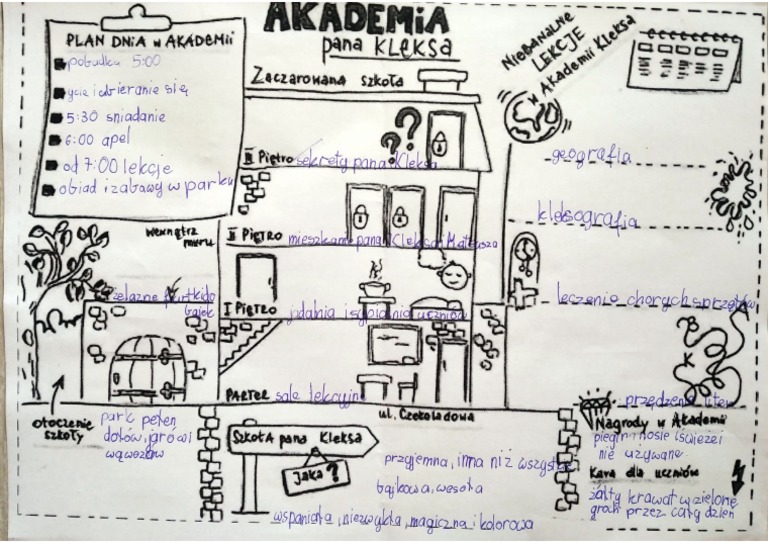 AKADEMIA
pana KLEKSA
PLAN DNIA W AKADEMII
pobudka 5:00
ycie i ubieranie się
5:30 sniadanie
6:00 apel
od 7:00 lekcje
obiad i zabawy w parku
Zaczarowana szkoła
III Piętro sekrety pana Kleksa
II PIĘTRO mieszkanie pana Kleksa i Mateusza
I PIĘTRO jadalnia i sypialnia uczniów
PARTER sale lekcyjne
NIEBANALNE
LEKCJE
w
Akademii Kleksa
geografia
kleksografia
leczenie chorych sprzętów
przędzenie liter
B
K
wewnątrz
muru
żelazne furtki do
bajek
otoczenie
szkoły
park pełen
dołów, gro i
wąwozów
ul. Czekoladowa
Szkoła pana Kleksa
Jaka?
przyjemna, inna niż wszystkie
bajkowa, wesoła
wspaniała, niezwykła, magiczna i kolorowa
Nagrody w Akademii
piegi nosie
nie używane
Kara dla uczniów
żółty krawat w zielone
groch przez cały dzień